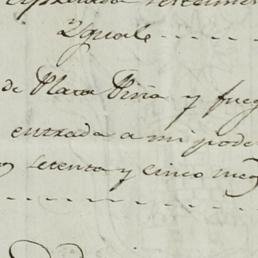 Yguale
de Plata Piña y fueg
entrada a mi pode
setenta y cinco